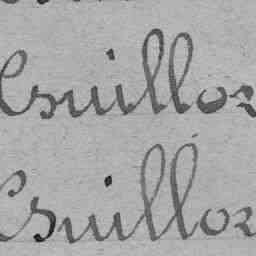 Guilloz
Guilloz